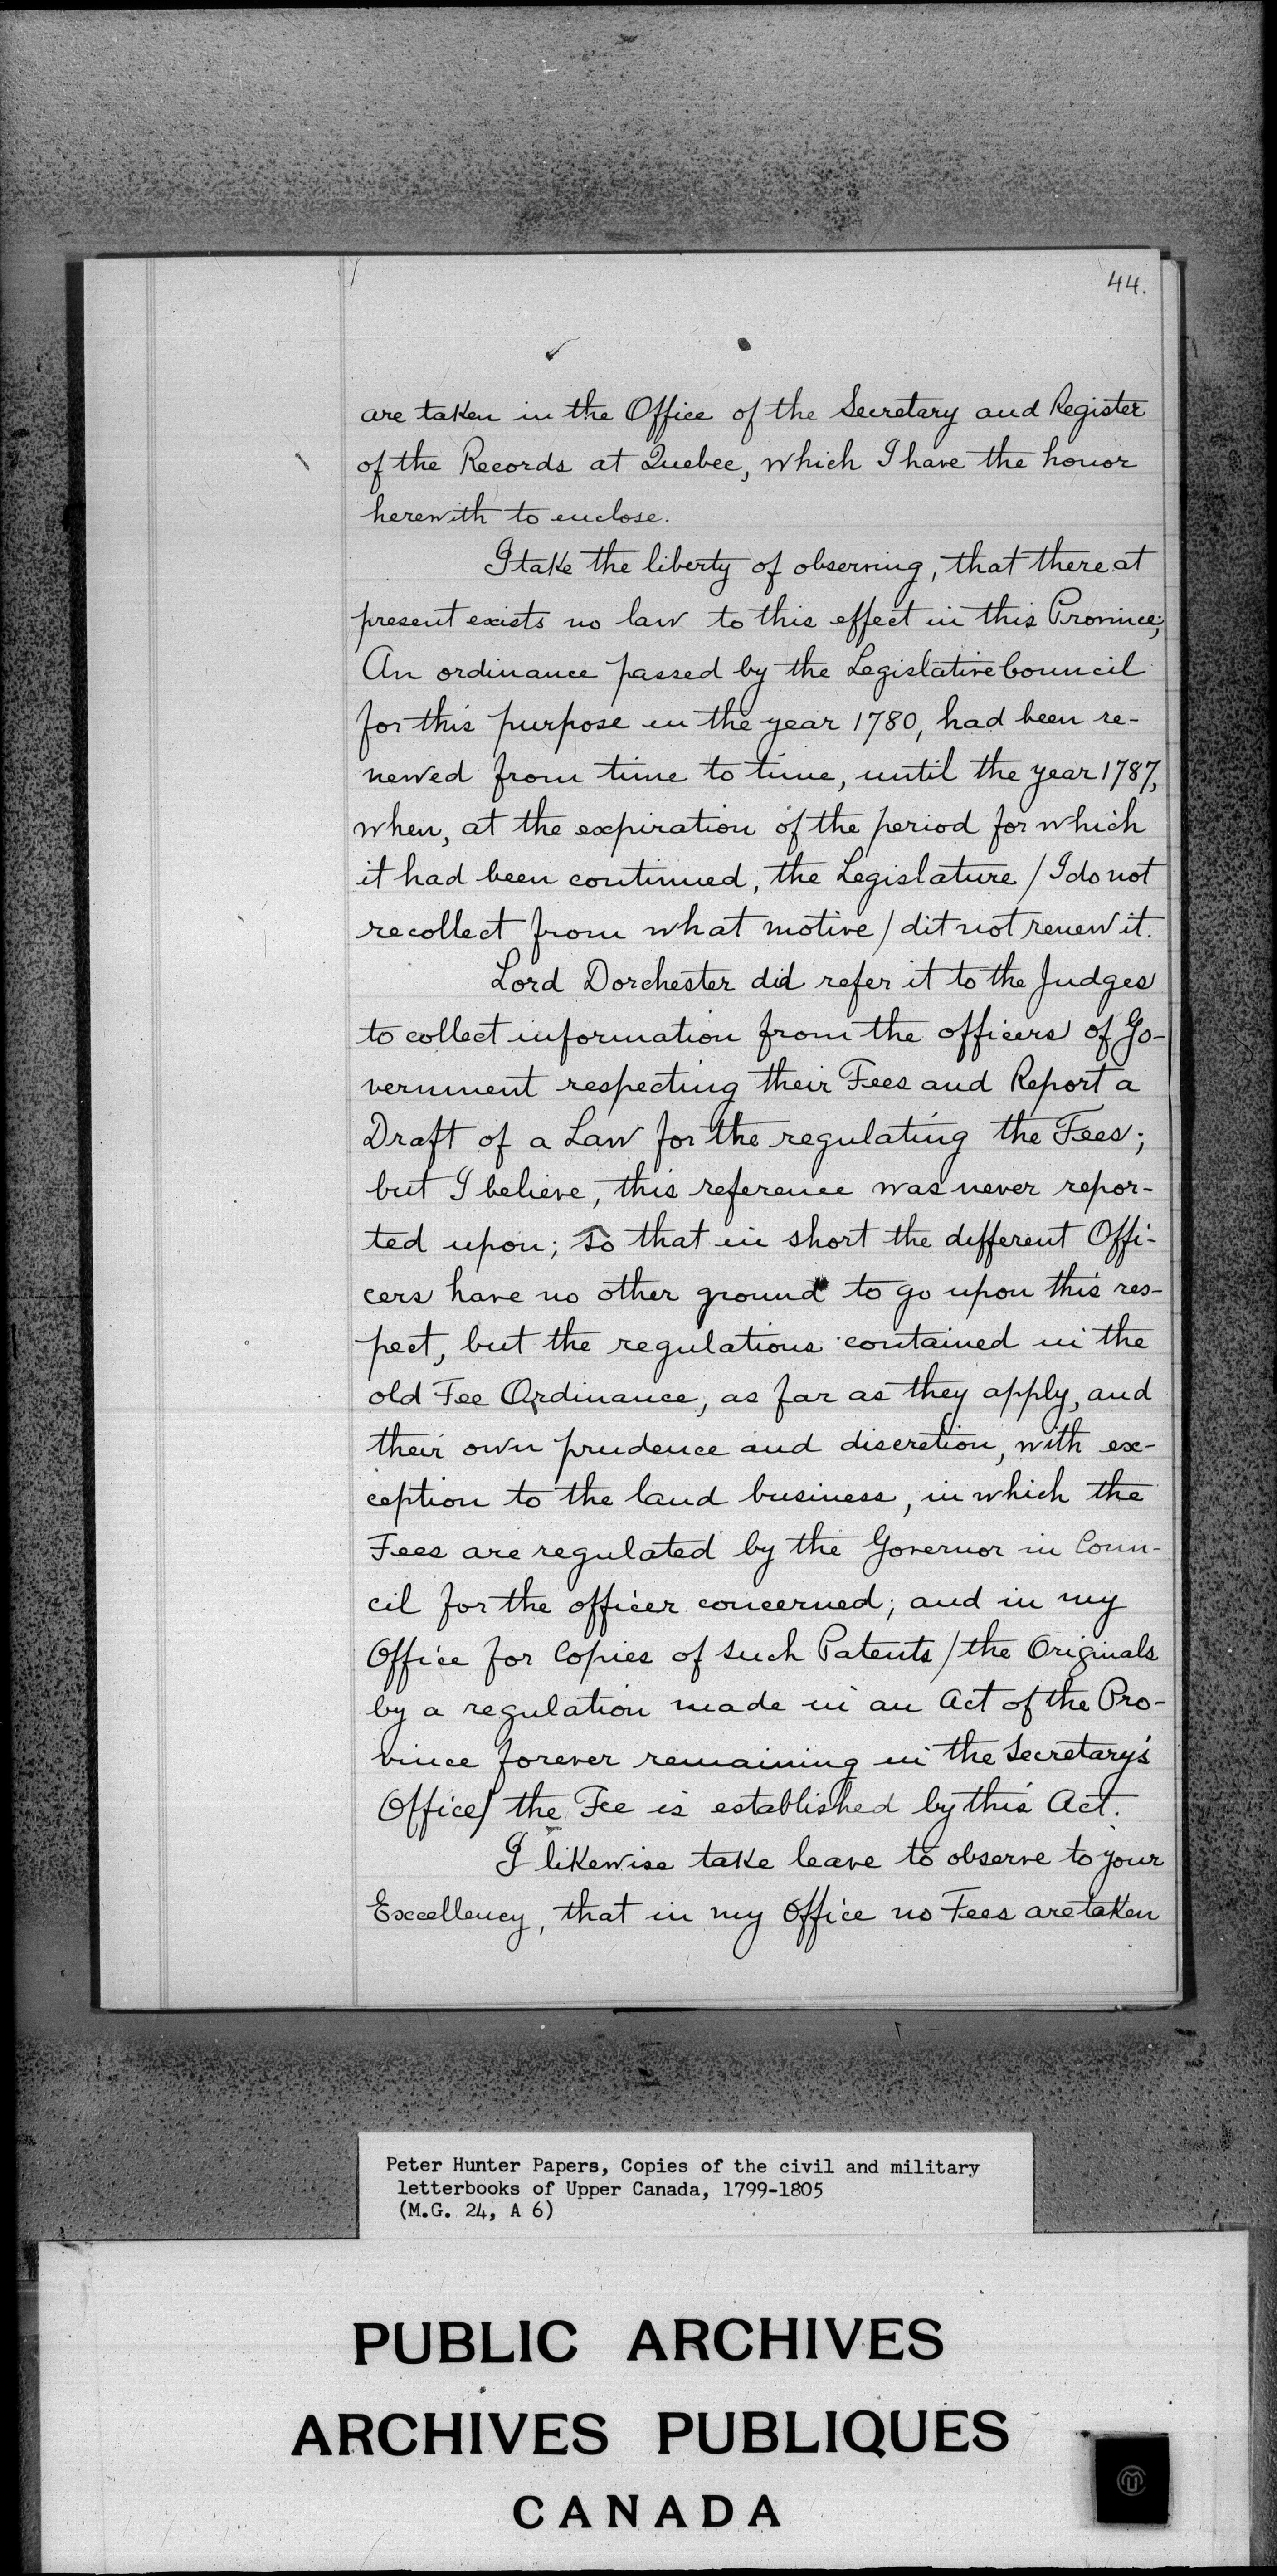 44.
are taken in the Office of the Secretary and Register
of the Records at Quebec, which I have the honor
herewith to enclose.
I take the liberty of observing, that there at
present exists no law to this effect in this Province;
An ordinance passed by the Legislative Council
for this purpose in the year 1780, had been re-
newed from time to time, until the year 1787,
when, at the expiration of the period for which
it had been continued, the Legislature / I do not
recollect from what motive / dit not renew it.
Lord Dorchester did refer it to the Judges
to collect information from the officers of Go-
vernment respecting their Fees and Report a
Draft of a Law for the regulating the Fees;
but I believe, this reference was never repor-
ted upon; so that in short the different Offi-
cers have no other ground to go upon this res-
pect, but the regulations contained in the
old Fee Ordinance, as far as they apply, and
their own prudence and discretion, with ex-
ception to the land business, in which the
Fees are regulated by the Governor in Coun-
cil for the officer concerned; and in my
Office for Copies of such Patents / the Originals
by a regulation made in an Act of the Pro-
vince forever remaining in the Secretary's
Office/ the Fee is established by this Act.
I likewise take leave to observe to your
Excellency, that in my Office no Fees are taken
Peter Hunter Papers, Copies of the civil and military
letterbooks of Upper Canada, 1799-1805
(M.G. 24, A 6)
PUBLIC ARCHIVES
ARCHIVES PUBLIQUES
CANADA